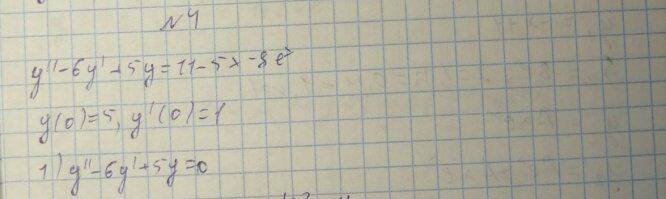 №4
y''-6y'+5y=11-5x-8eˣ
y(0)=5, y'(0)=1
1) y''-6y'+5y=0